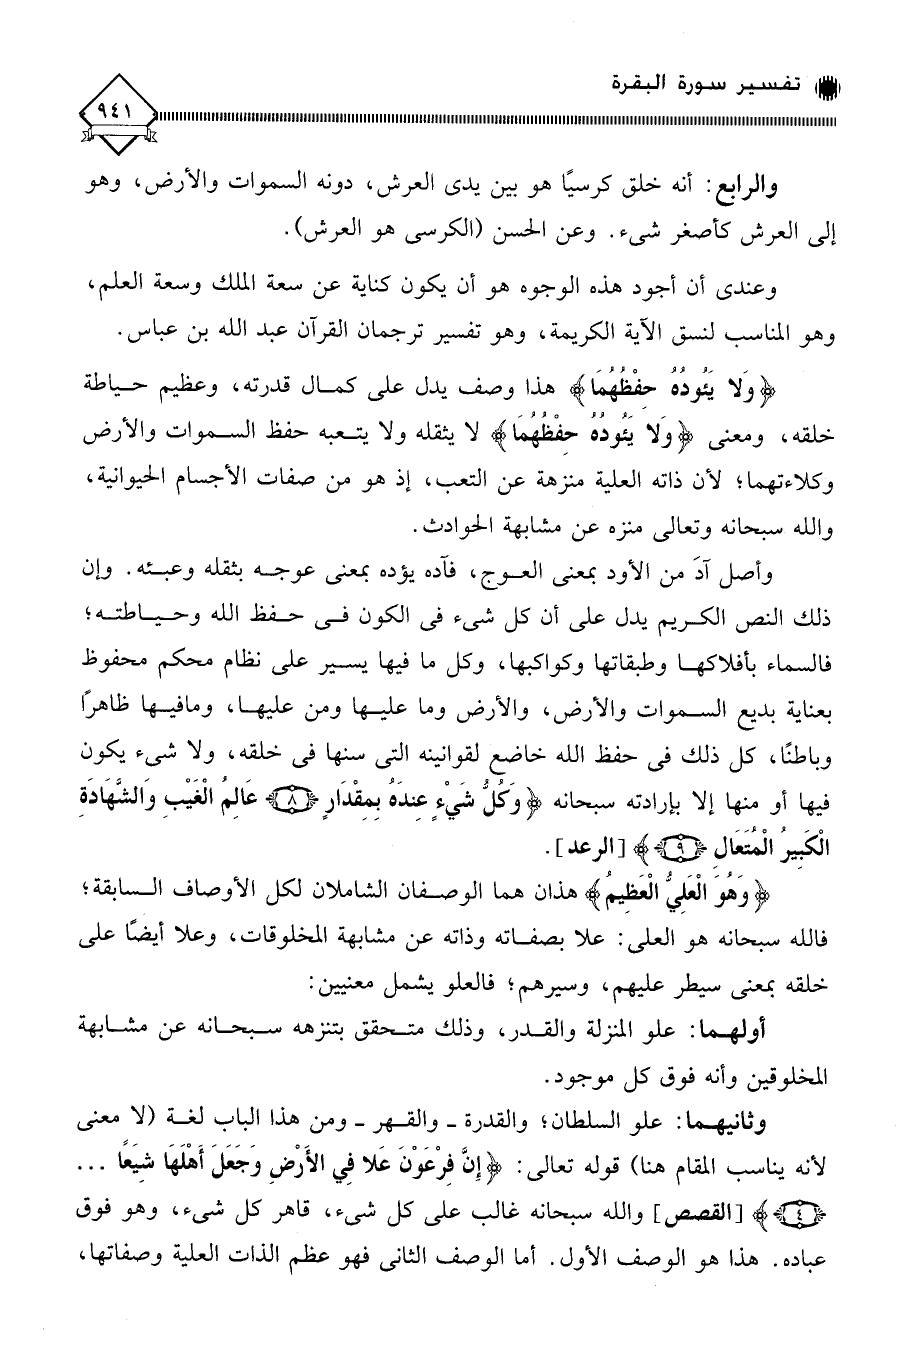 تفسير سورة البقرة
٩٤١
والرابع: أنه خلق كرسيًا هو بين يدى العرش، دونه السموات والأرض، وهو
إلى العرش كأصغر شىء. وعن الحسن (الكرسى هو العرش).
وعندى أن أجود هذه الوجوه هو أن يكون كناية عن سعة الملك وسعة العلم،
وهو المناسب لنسق الآية الكريمة، وهو تفسير ترجمان القرآن عبد الله بن عباس.
﴿وَلا يَئُودُهُ حِفْظُهُمَا﴾ هذا وصف يدل على كمال قدرته، وعظيم حياطة
خلقه، ومعنى ﴿وَلا يَئُودُهُ حِفْظُهُمَا﴾ لا يثقله ولا يتعبه حفظ السموات والأرض
وكلاءتهما؛ لأن ذاته العلية منزهة عن التعب، إذ هو من صفات الأجسام الحيوانية،
والله سبحانه وتعالى منزه عن مشابهة الحوادث.
وأصل آدَ من الأود بمعنى العوج، فآده يؤده بمعنى عوجه بثقله وعبئه. وإن
ذلك النص الكريم يدل على أن كل شىء فى الكون فى حفظ الله وحياطته؛
فالسماء بأفلاكها وطبقاتها وكواكبها، وكل ما فيها يسير على نظام محكم محفوظ
بعناية بديع السموات والأرض، والأرض وما عليها ومن عليها، ومافيها ظاهرًا
وباطنًا، كل ذلك فى حفظ الله خاضع لقوانينه التى سنها فى خلقه، ولا شىء يكون
فيها أو منها إلا بإرادته سبحانه ﴿وَكُلُّ شَيْءٍ عِندَهُ بِمِقْدَارٍ ﴿٨﴾ عَالِمُ الْغَيْبِ وَالشَّهَادَةِ
الْكَبِيرُ الْمُتَعَالِ ﴿٩﴾﴾ [الرعد].
﴿وَهُوَ الْعَلِيُّ الْعَظِيمُ﴾ هذان هما الوصفان الشاملان لكل الأوصاف السابقة؛
فالله سبحانه هو العلى: علا بصفاته وذاته عن مشابهة المخلوقات، وعلا أيضًا على
خلقه بمعنى سيطر عليهم، وسيرهم؛ فالعلو يشمل معنيين:
أولهما: علو المنزلة والقدر، وذلك متحقق بتنزهه سبحانه عن مشابهة
المخلوقين وأنه فوق كل موجود.
وثانيهما: علو السلطان؛ والقدرة ـ والقهر ـ ومن هذا الباب لغة (لا معنى
لأنه يناسب المقام هنا) قوله تعالى: ﴿إِنَّ فِرْعَوْنَ عَلا فِي الأَرْضِ وَجَعَلَ أَهْلَهَا شِيَعًا ...
﴿٤﴾﴾ [القصص] والله سبحانه غالب على كل شىء، قاهر كل شىء، وهو فوق
عباده. هذا هو الوصف الأول. أما الوصف الثانى فهو عظم الذات العلية وصفاتها،